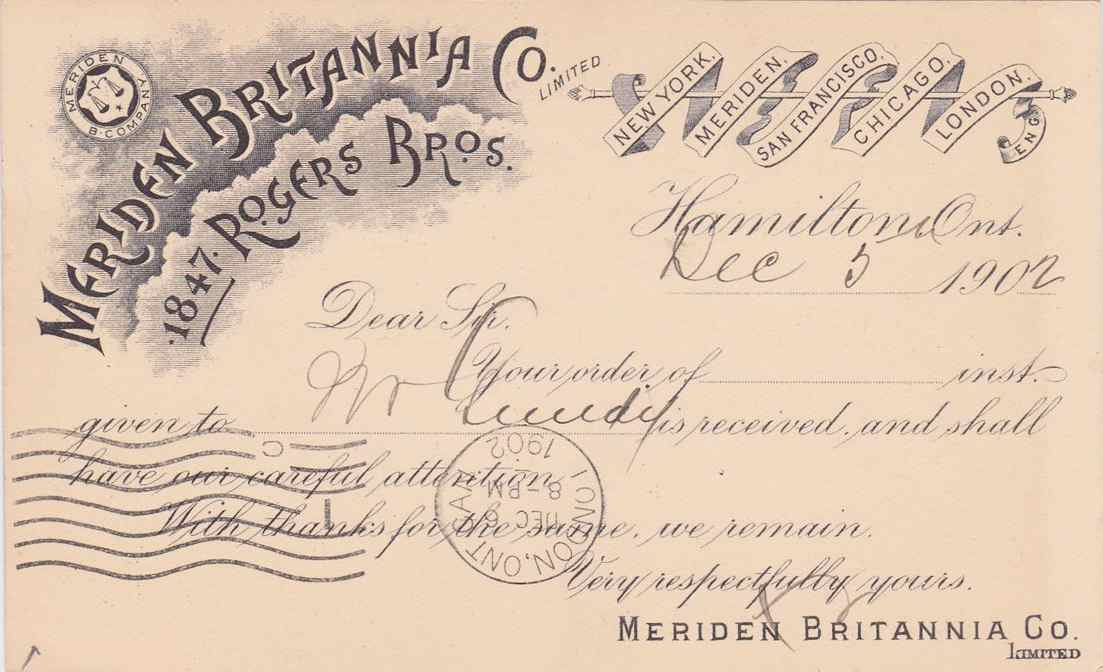 MERIDEN B. COMPANY
MERIDEN BRITANNIA CO. LIMITED
1847. ROGERS BROS.
NEW YORK. MERIDEN. SAN FRANCISCO. CHICAGO. LONDON. ENG.
Hamilton, Ont.
Dec 5 1902
Dear Sir.
Your order of inst.
given to Mr Lundy is received, and shall
have our careful attention.
With thanks for the same, we remain.
Very respectfully yours.
MERIDEN BRITANNIA CO.
LIMITED
LONDON, ONT. CANADA
DEC 6
8-PM
1902